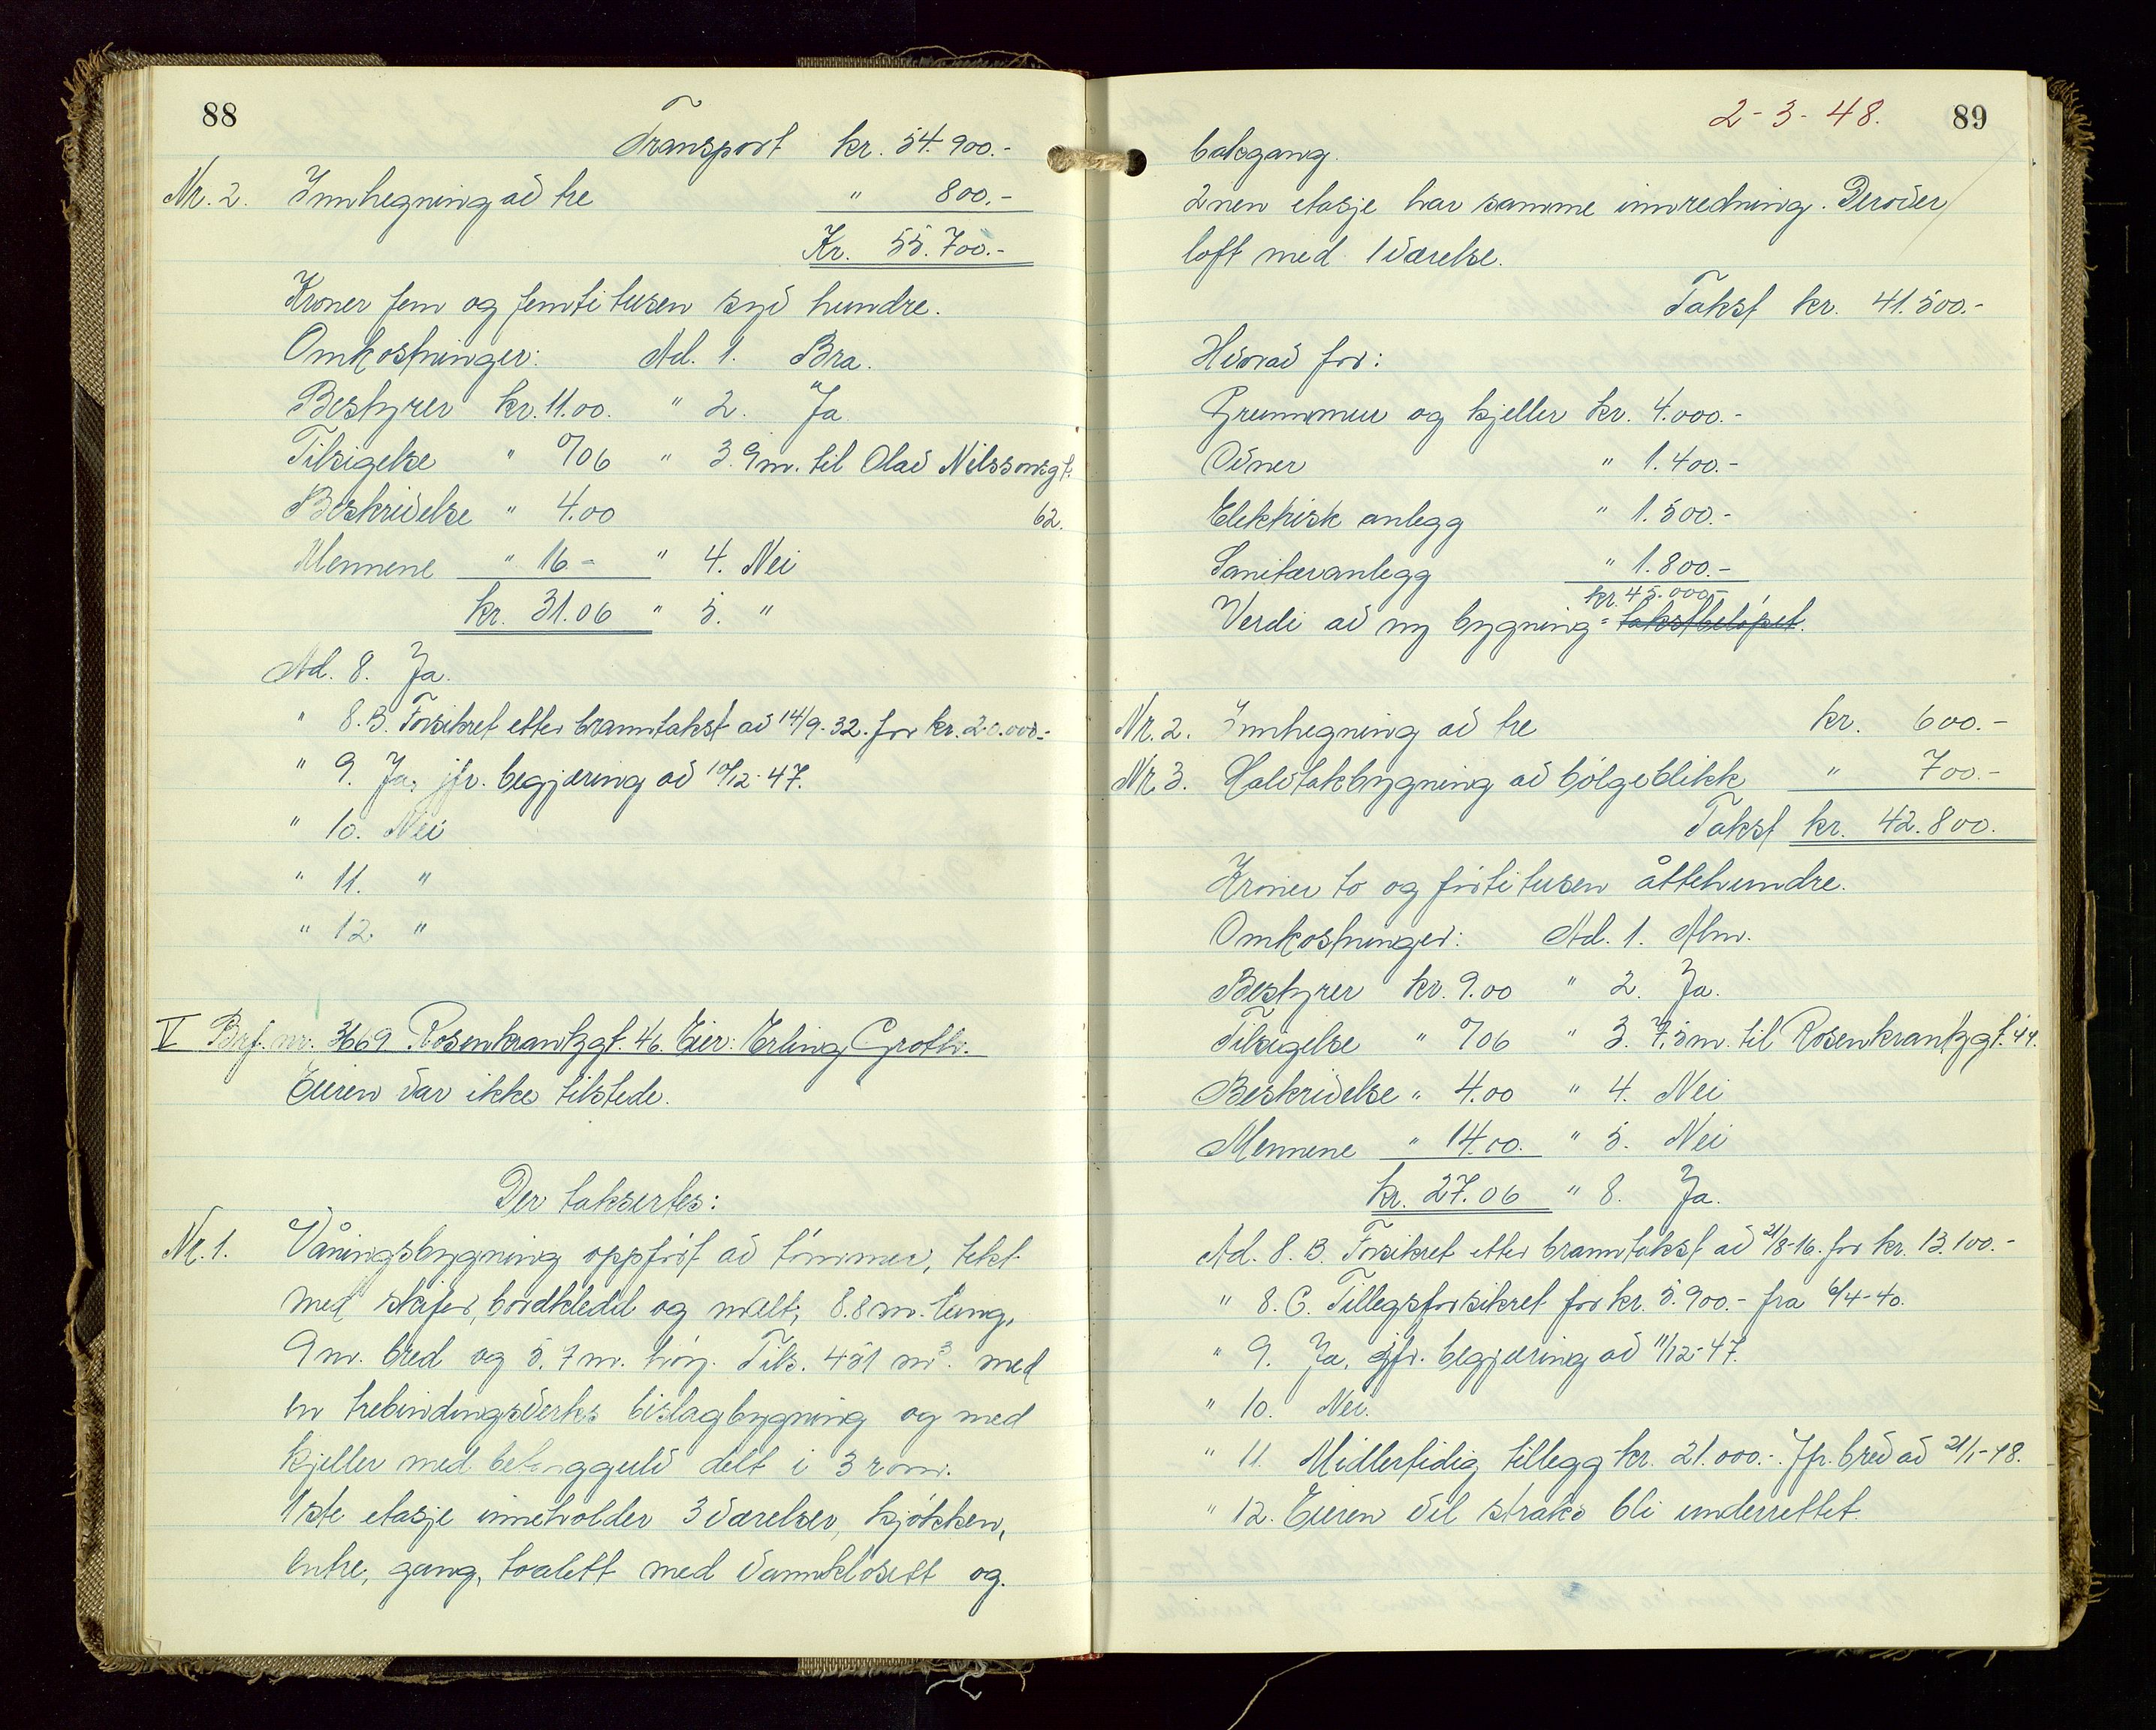 88
Transport kr. 54.900.-
Nr. 2. Innhegning av tre " 800.-
Kr. 55.700.-
Kroner fem og femti tusen syv hundre.
Omkostninger: Ad. 1. Bra.
Bestyrer kr. 11.00. " 2. Ja
Tilsigelse " 0/06 " 3. 9 m. til Olav Nilssonsgt.
Beskrivelse " 4.00 62.
Mennene " 16 - " 4. Nei
kr. 31.06 " 5. "
Ad. 8. Ja.
" 8.B. Forsikret etter branntakst av 14/9-32. for kr. 20.000.-
" 9. Ja, jfr. begjæring av 10/12-47.
" 10. Nei
" 11. "
" 12. "
V Brf. nr. 3669 Rosenkrantzgt. 46. Eier: Erling Groth.
Eieren var ikke tilstede.
Der taksertes:
Nr. 1. Våningsbygning oppført av tømmer, tekt
med skifer, bordkledd og malt, 8.8 m. lang,
9 m. bred og 5.7 m. høy. Tils. 451 m³. med
en trebindingsverks bislagbygning og med
kjeller med betonggulv delt i 3 rom.
1ste etasje inneholder 3 værelser, kjøkken,
entre, gang, toalett med vannklosett og
2-3-48. 89
bakgang.
2nen etasje har samme innredning. Derover
loft med 1 værelse.
Takst kr. 41.500.-
Hvorav for:
Grunnmur og kjeller kr. 4.000.-
Ovner " 1.400.-
Elektrisk anlegg " 1.500.-
Sanitæranlegg " 1.800.-
kr. 45.000.-
Verdi av ny bygning = takstbeløpet.
Nr. 2. Innhegning av tre kr. 600.-
Nr. 3. Halvtakbygning av bølgeblikk " 700.-
Takst kr. 42.800.
Kroner to og førti tusen åttehundre.
Omkostninger: Ad. 1. Alm.
Bestyrer kr. 9.00 " 2. Ja.
Tilsigelse " 0/06 " 3. 7,5 m. til Rosenkrantzgt. 44.
Beskrivelse " 4.00 " 4. Nei
Mennene " 14.00. " 5. Nei
kr. 27.06 " 8. Ja.
Ad. 8. B. Forsikret etter branntakst av 21/8-16. for kr. 13.100.-
" 8. C. Tillegsforsikret for kr. 5.900.- fra 6/4-40.
" 9. Ja, jfr. begjæring av 11/12-47.
" 10. Nei.
" 11. Midlertidig tillegg kr. 21.000.-. Jfr. brev av 21/1-48.
" 12. Eieren vil straks bli underrettet.